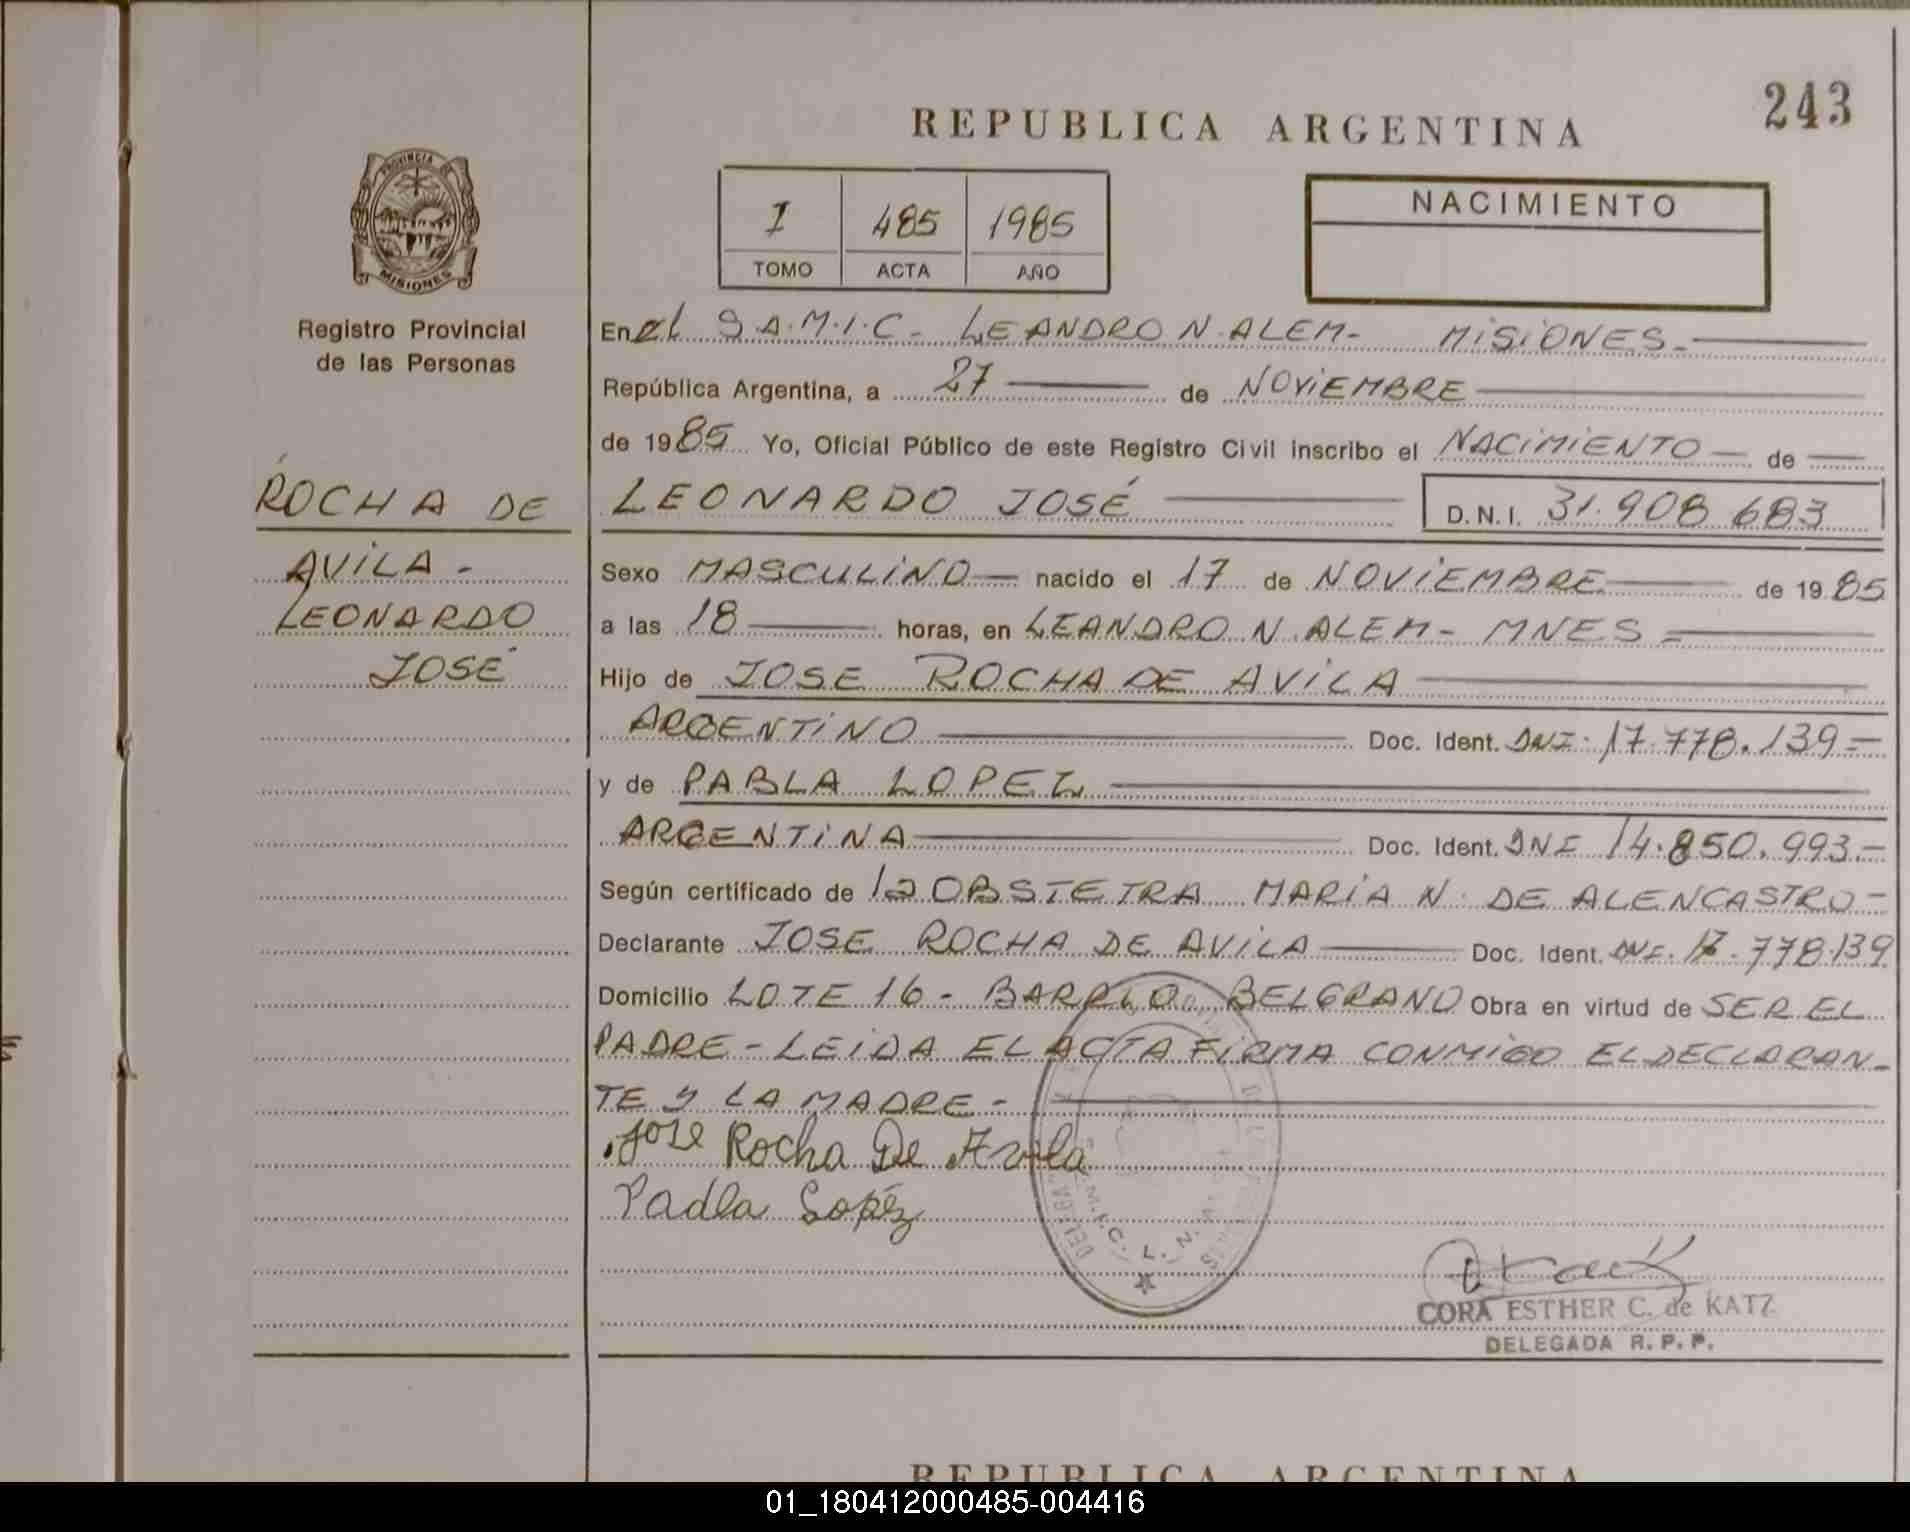 243
REPUBLICA ARGENTINA
PROVINCIA
MISIONES
Registro Provincial
de las Personas
I 485 1985
TOMO ACTA AÑO
NACIMIENTO
En el S.A.M.I.C- LEANDRO N. ALEM- MISIONES-
República Argentina, a 27 de NOVIEMBRE
de 1985 Yo, Oficial Público de este Registro Civil inscribo el NACIMIENTO de
ROCHA DE
AVILA-
LEONARDO
JOSÉ
LEONARDO JOSÉ D.N.I. 31.908 683
Sexo MASCULINO nacido el 17 de NOVIEMBRE de 1985
a las 18 horas, en LEANDRO N. ALEM- MNES=
Hijo de JOSE ROCHA DE AVILA
ARGENTINO Doc. Ident. DNI. 17.778.139=
y de PABLA LOPEZ
ARGENTINA Doc. Ident. DNI 14.850.993.-
Según certificado de la OBSTETRA MARIA N. DE ALENCASTRO-
Declarante JOSE ROCHA DE AVILA Doc. Ident. DNI. 17.778.139
Domicilio LOTE 16- BARRIO BELGRANO Obra en virtud de SER EL
PADRE- LEIDA EL ACTA FIRMA CONMIGO EL DECLARAN-
TE Y LA MADRE-
Jose Rocha De Avila
Padla Lopéz
S.A.M.I.C. L. N. A.
CORA ESTHER C. de KATZ
DELEGADA R. P. P.
REPUBLICA ARGENTINA
01_180412000485-004416